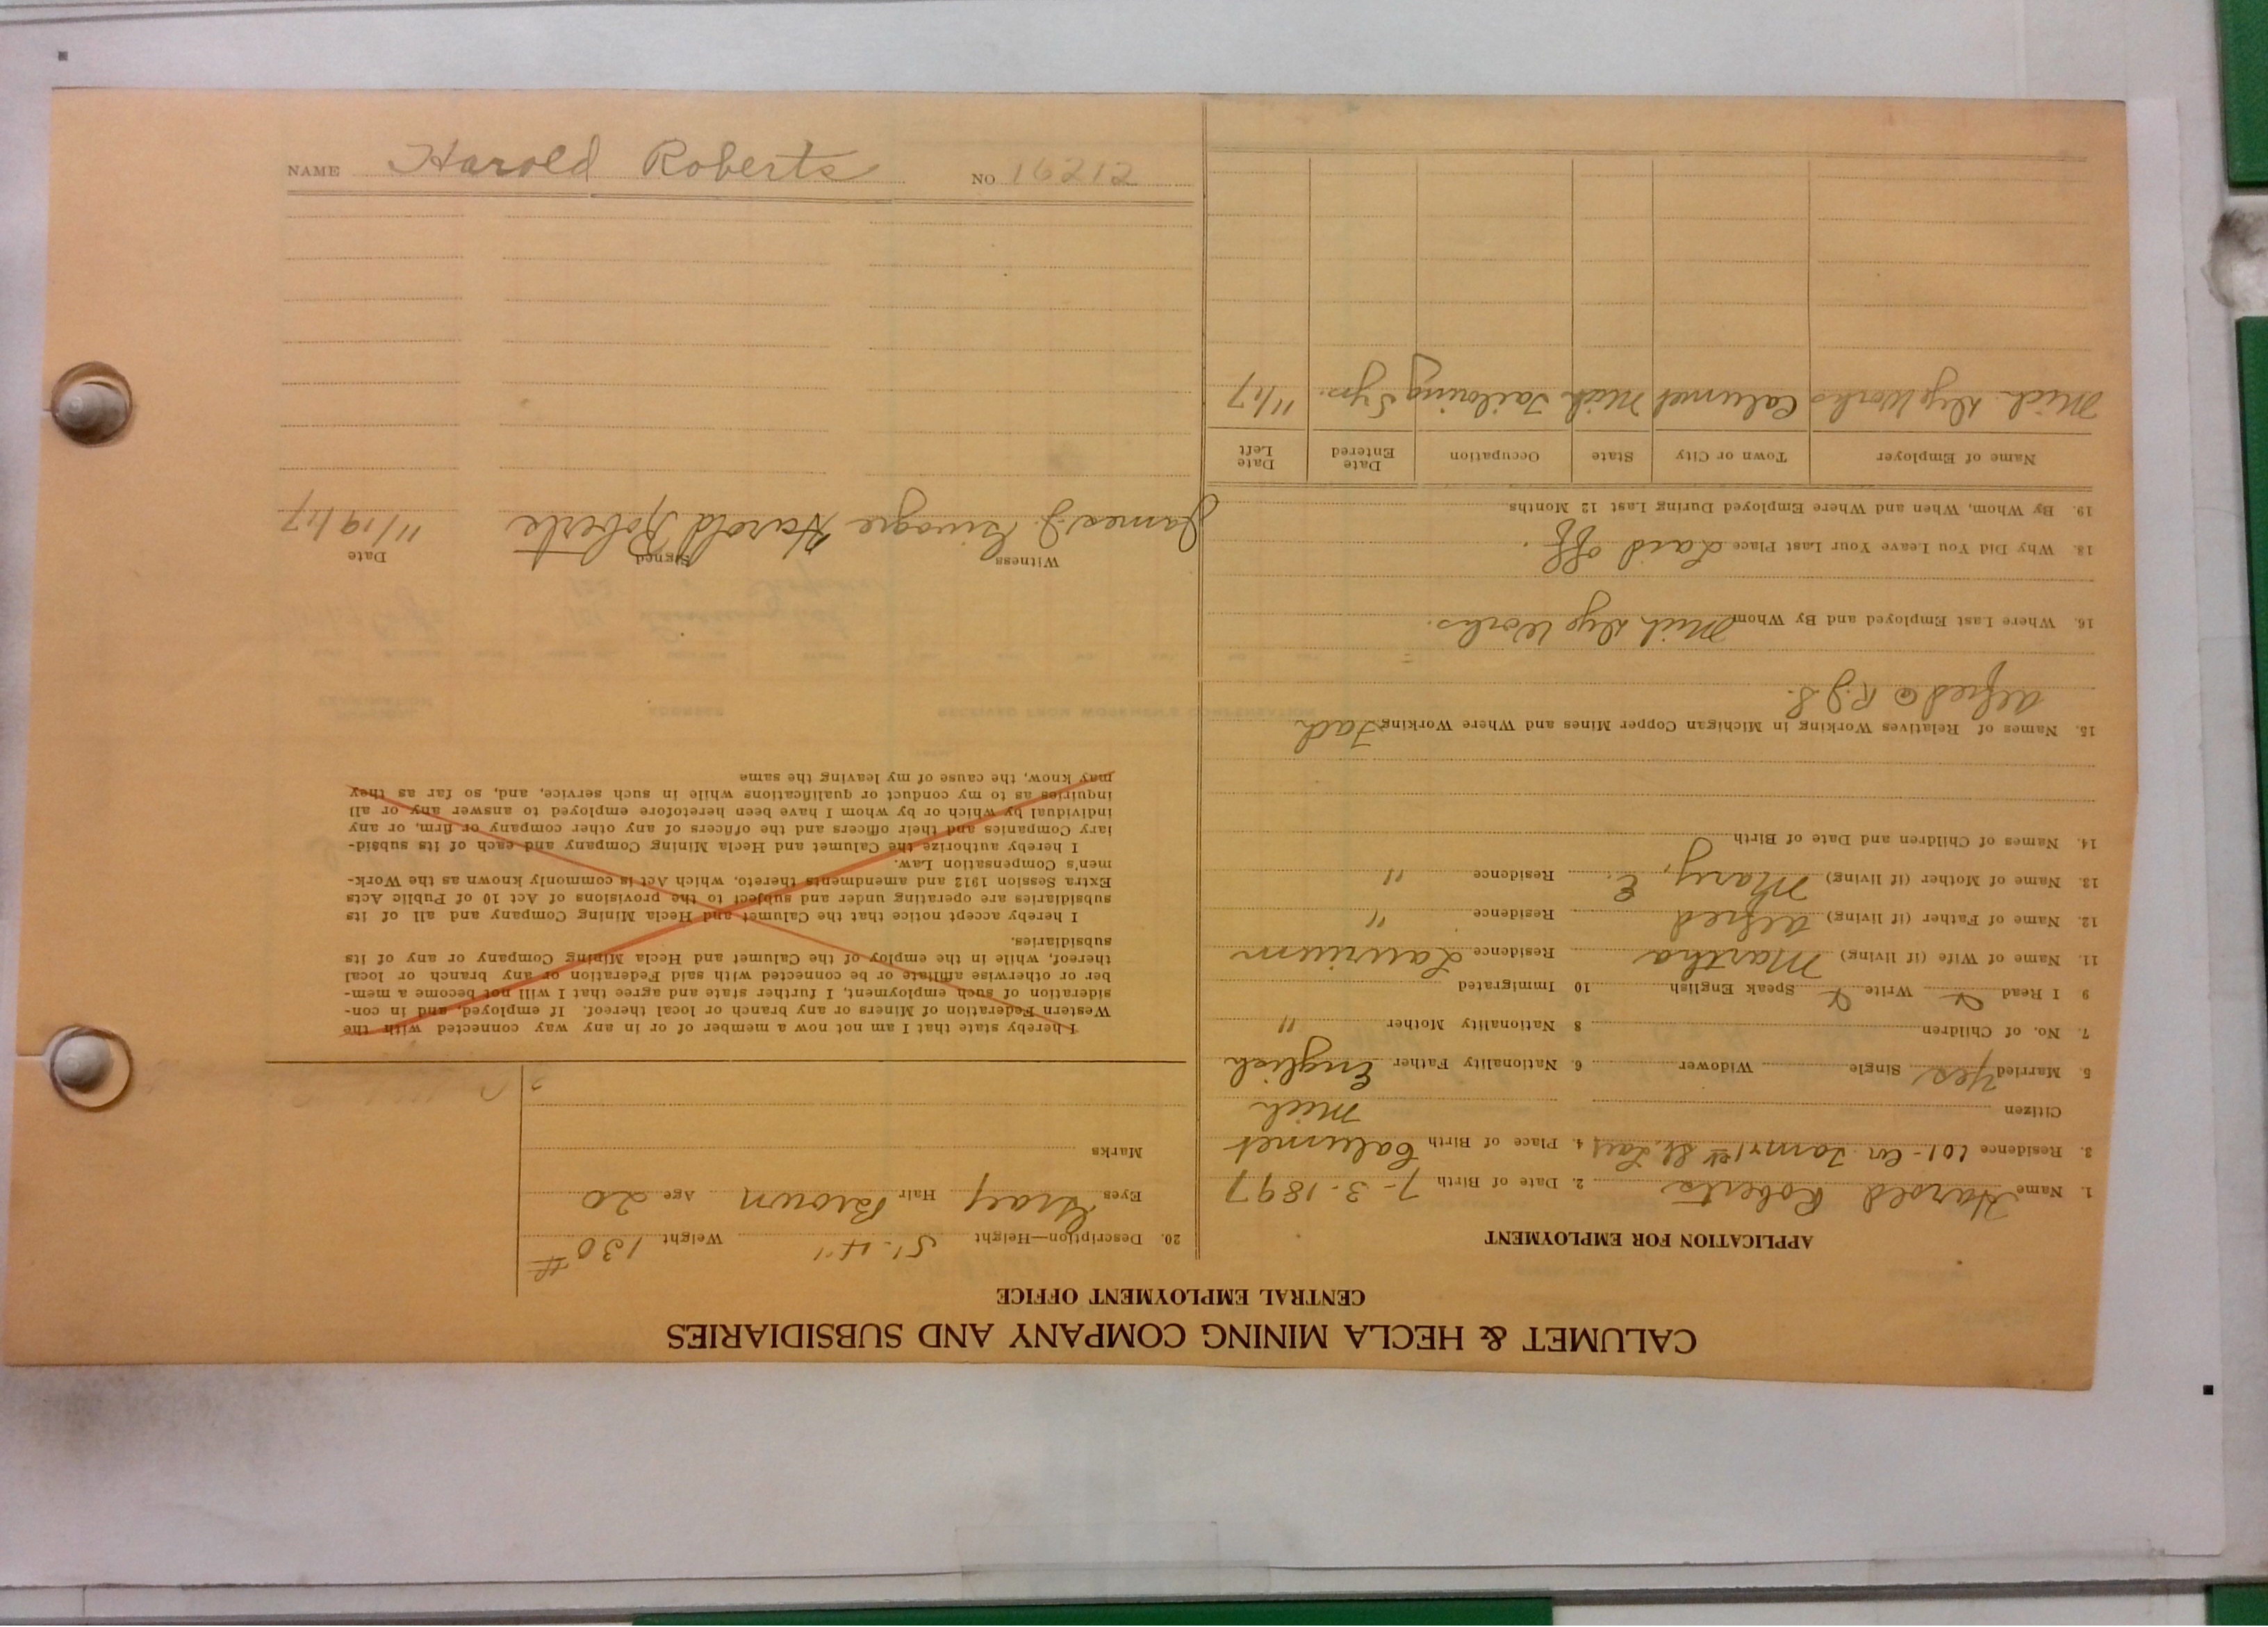 CALUMET & HECLA MINING COMPANY AND SUBSIDIARIES
CENTRAL EMPLOYMENT OFFICE
APPLICATION FOR EMPLOYMENT
1. Name Harold Roberts 2. Date of Birth 7-3-1897
3. Residence 101- Cor 1st St. 4. Place of Birth Calumet
Citizen Mich
5. Married Yes Single Widower 6. Nationality Father English
7. No. of Children 8 Nationality Mother "
9 I Read Write Speak English 10 Immigrated
11. Name of Wife (if living) Martha Residence Laurium
12. Name of Father (if living) Alfred Residence "
13. Name of Mother (if living) Mary, E. Residence "
14. Names of Children and Date of Birth
15. Names of Relatives Working in Michigan Copper Mines and Where Working Fath
Alfred @ R.J.S.
16. Where Last Employed and By Whom Mich Dye Works.
18. Why Did You Leave Your Last Place Laid off.
19. By Whom, When and Where Employed During Last 12 Months
Name of Employer Town or City State Occupation Date Entered Date Left
Mich. Dye Works Calumet Mich Tailoring 5 yrs. 11/17
20. Description—Height 5'-4" Weight 130#
Eyes Gray Hair Brown Age 20
Marks
I hereby state that I am not now a member of or in any way connected with the
Western Federation of Miners or any branch or local thereof. If employed, and in con-
sideration of such employment, I further state and agree that I will not become a mem-
ber or otherwise affiliate or be connected with said Federation or any branch or local
thereof, while in the employ of the Calumet and Hecla Mining Company or any of its
subsidiaries.
I hereby accept notice that the Calumet and Hecla Mining Company and all of its
subsidiaries are operating under and subject to the provisions of Act 10 of Public Acts
Extra Session 1912 and amendments thereto, which Act is commonly known as the Work-
men's Compensation Law.
I hereby authorize the Calumet and Hecla Mining Company and each of its subsid-
iary Companies and their officers and the officers of any other company or firm, or any
individual by which or by whom I have been heretofore employed to answer any or all
inquiries as to my conduct or qualifications while in such service, and, so far as they
may know, the cause of my leaving the same
Witness Signed Date
James J. Harold Roberts 11/19/17
NAME Harold Roberts NO 16212